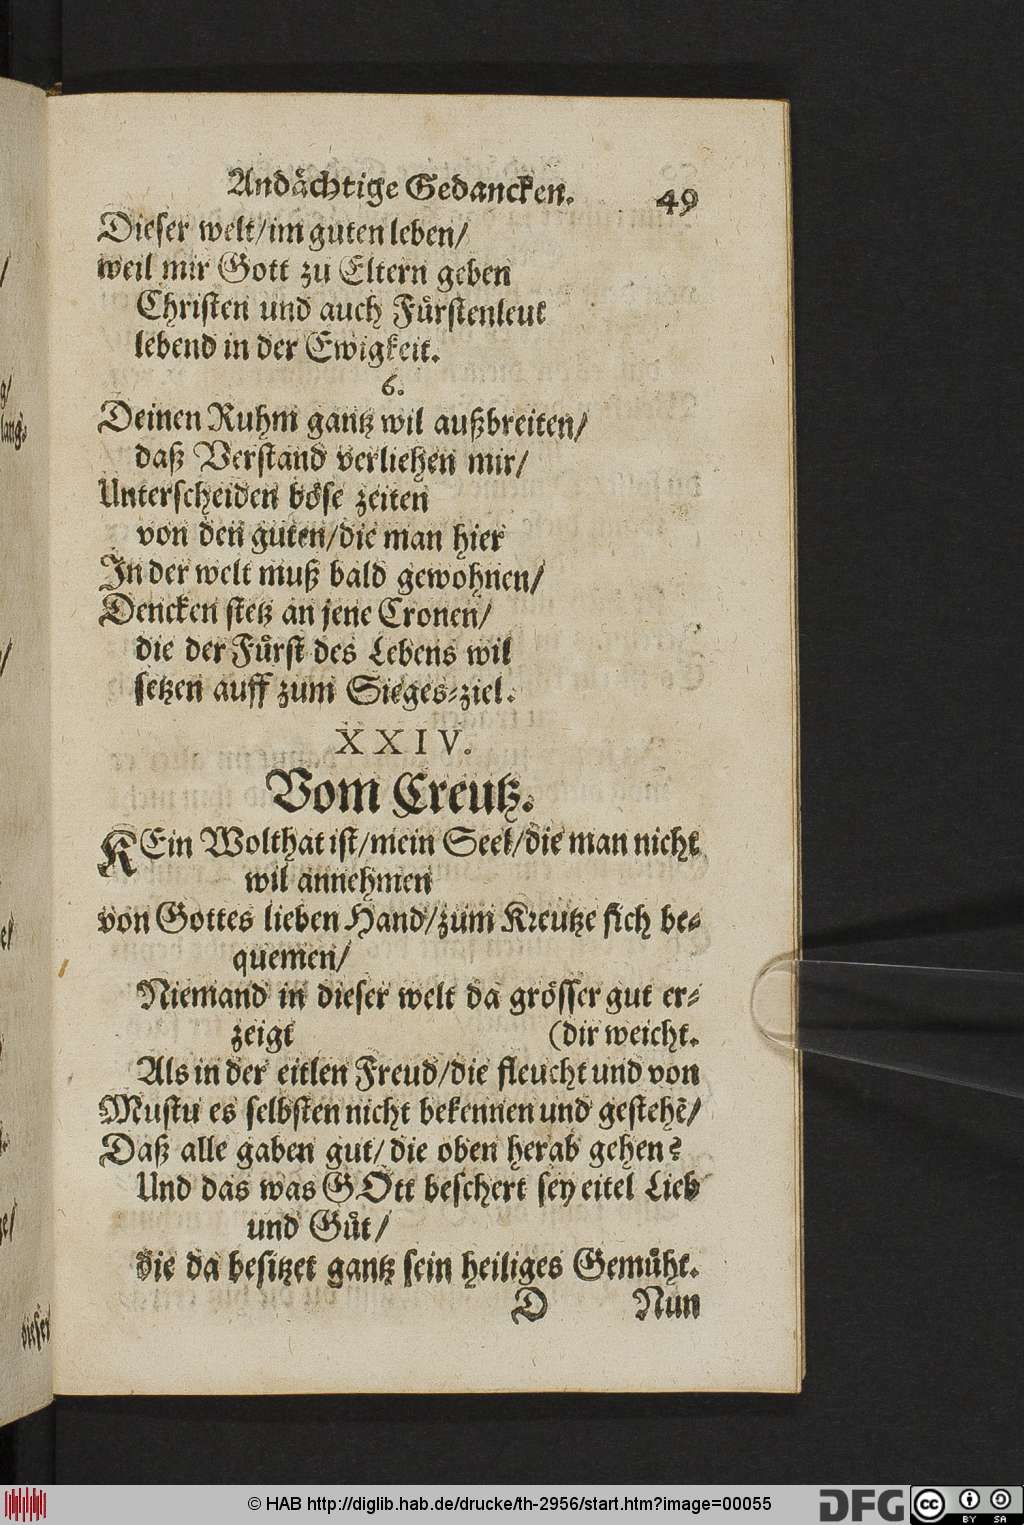 Andächtige Gedancken. 49
Dieser welt/im guten leben/
weil mir Gott zu Eltern geben
Christen und auch Fürstenleut
lebend in der Ewigkeit.
6.
Deinen Ruhm gantz wil außbreiten/
daß Verstand verliehen mir/
Unterscheiden böse zeiten
von den guten/die man hier
In der welt muß bald gewohnen/
Dencken stetz an jene Cronen/
die der Fürst des Lebens wil
setzen auff zum Sieges-ziel.
XXIV.
Vom Creutz.
KEin Wolthat ist/mein Seel/die man nicht
wil annehmen
von Gottes lieben Hand/zum Kreutze sich be-
quemen/
Niemand in dieser welt da grösser gut er-
zeigt (dir weicht.
Als in der eitlen Freud/die fleucht und von
Mustu es selbsten nicht bekennen und gestehẽ/
Daß alle gaben gut/die oben herab gehen?
Und das was GOtt beschert sey eitel Lieb
und Güt/
die da besitzet gantz sein heiliges Gemüht.
D Nun
/
g/
lang-
/
el
ge/
dieser
© HAB http://diglib.hab.de/drucke/th-2956/start.htm?image=00055
DFG
cc BY SA